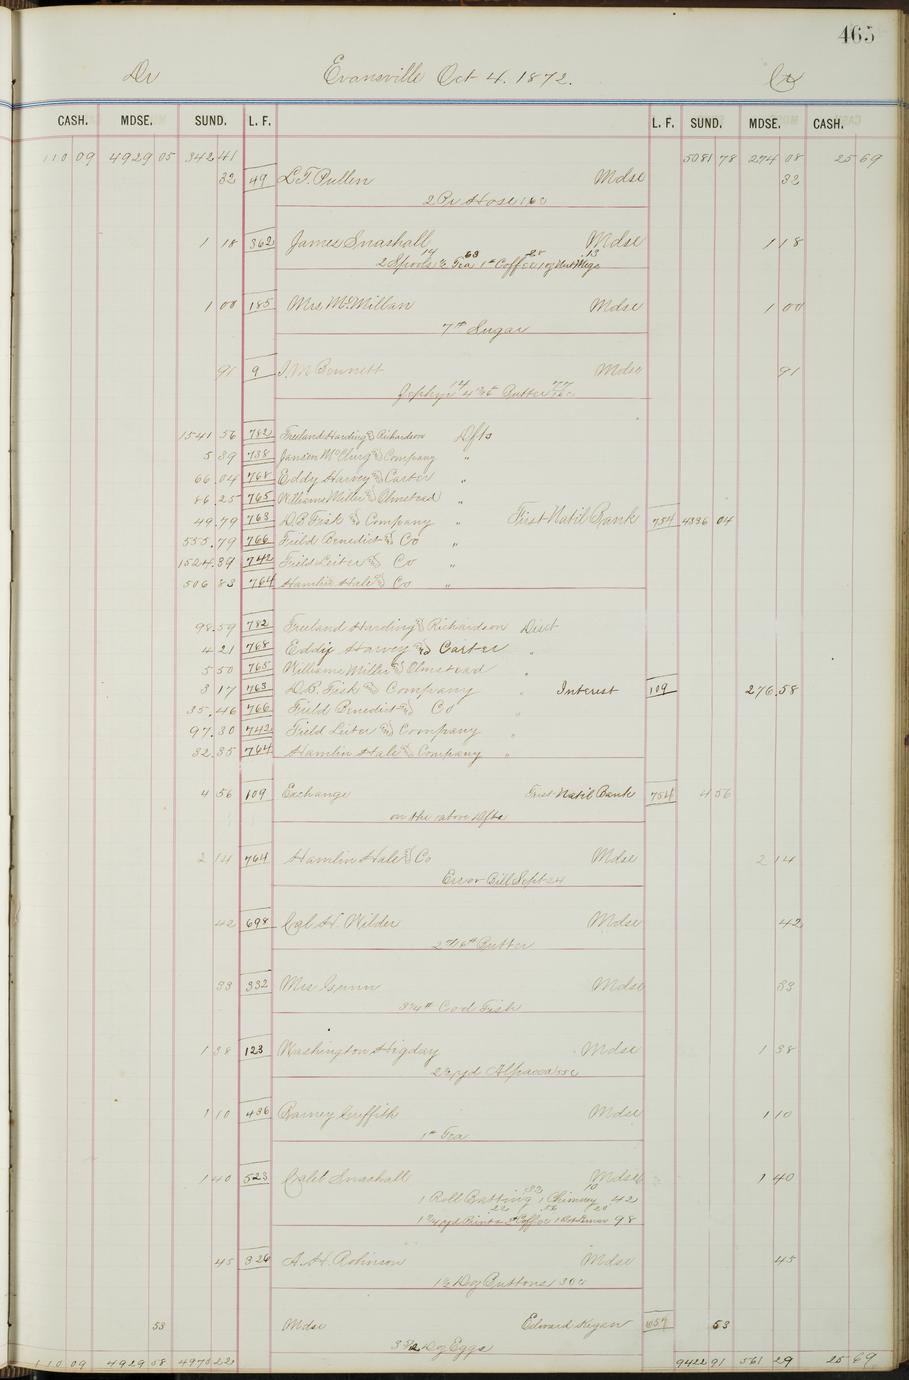 465
Dr Evansville Oct 4. 1872. Cr
CASH. MDSE. SUND. L. F. L. F. SUND. MDSE. CASH.
110 09 4929 05 342 41 5081 78 274 08 25 69
32 49 L.T. Pullen Mdse 32
2 Pr Hose 16c
1 18 362 James Snashall Mdse 1 18
14 63 28 13
2 Spools ½ Tea 1# Coffee 1 oz Nut Megs
1 00 185 Mrs McMillan Mdse 1 00
7# Sugar
91 9 J.M. Bennett Mdse 91
14 77
Zephyr 4 Butter
1541 56 782 Freeland Harding & Richardson Dfts
5 39 738 Jansen McClurg & Company "
66.04 768 Eddy Harvey & Carter "
86.25 765 Williams Miller & Olmstead "
49.79 763 D.B. Fisk & Company " First Natil Bank 754 4336 04
555.79 766 Field Benedict & Co "
1524.39 742 Field Leiter & Co "
506 83 764 Hamlin Hale & Co "
98.59 782 Freeland Harding & Richardson Disct
4 21 768 Eddy Harvey & Carter "
5 50 765 Williams Miller & Olmstead "
3 17 763 D.B. Fisk & Company " Interest 109 276.58
35.46 766 Field Benedict & Co "
97.30 742 Field Leiter & Company "
32 35 764 Hamlin Hale & Company "
4 56 109 Exchange First Natil Bank 754 4 56
on the above Dfts
2 14 764 Hamlin Hale & Co Mdse 2 14
Error Bill Sept 24
42 698 Cal H. Wilder Mdse 42
Butter
33 332 Mrs Gunn Mdse 33
3¾# Cod Fish
1 38 123 Washington Higday Mdse 1 38
2½ yd Alpacca 55c
1 10 436 Barney Griffith Mdse 1 10
1# Tea
1 40 523 Caleb Snashall Mdse 1 40
32 10
1 Roll Batting 1 Chimney 42
22 56 20
1¾ yd Prints 2# Coffee 98
45 326 A.H. Robinson Mdse 45
1½ Doz Buttons 30c
53 Mdse Edward Hegan 657 53
Doz Eggs
110 09 4929 58 4970 22 9422 91 561 29 25 69